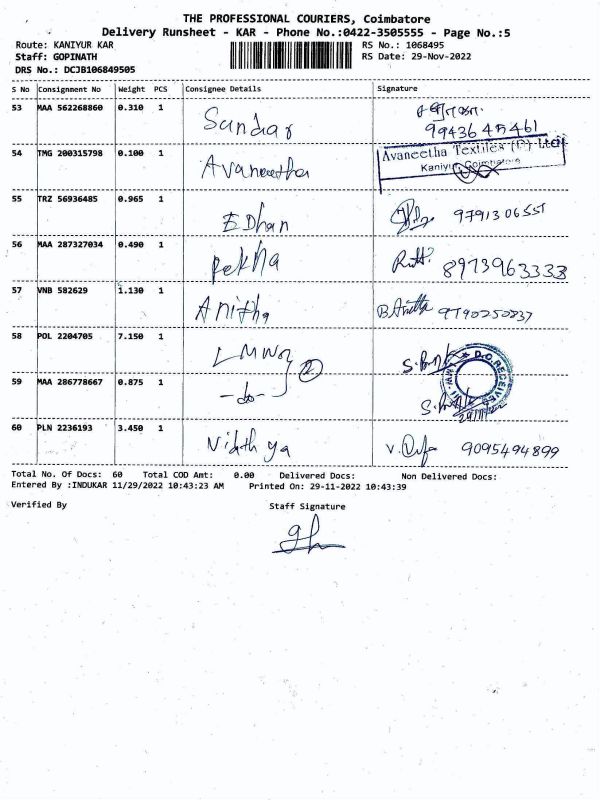 THE PROFESSIONAL COURIERS, Coimbatore
Delivery Runsheet - KAR - Phone No.:0422-3505555 - Page No.:5
Route: KANIYUR KAR RS No.: 1068495
Staff: GOPINATH RS Date: 29-Nov-2022
DRS No.: DCJB106849505
S No Consignment No Weight PCS Consignee Details Signature
53 MAA 562268860 0.310 1 Sundar
9943645461
54 TMG 200315798 0.100 1 Avaneetha Avaneetha Textiles (P) Ltd
Kaniyur, Coimbatore
55 TRZ 56936485 0.965 1 E Dhan 9791306551
56 MAA 287327034 0.490 1 Rekha 8973963333
57 VNB 582629 1.130 1 Anitha B.Anitha 9790250837
58 POL 2204705 7.150 1 LMW 2
D.C. RECEIVED
59 MAA 286778667 0.875 1 -do-
29/11/22
60 PLN 2236193 3.450 1 Nidthya 9095494899
Total No. Of Docs: 60 Total COD Amt: 0.00 Delivered Docs: Non Delivered Docs:
Entered By :INDUKAR 11/29/2022 10:43:23 AM Printed On: 29-11-2022 10:43:39
Verified By Staff Signature